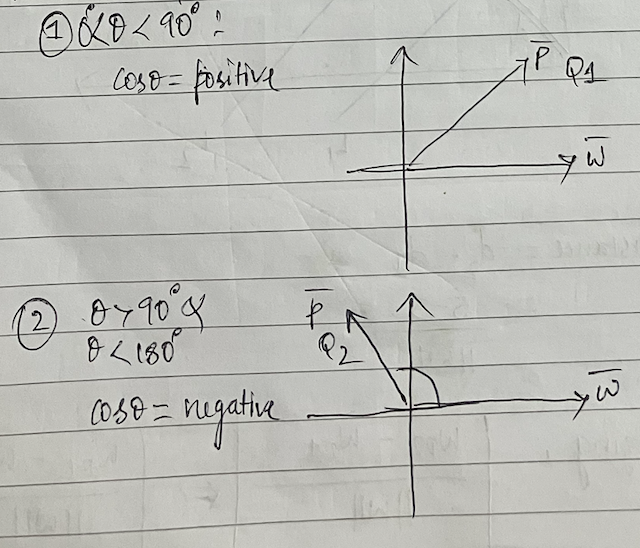 ① 0°<θ < 90° :
cosθ = positive
P̅ Q1
W̅
② θ > 90° &
θ < 180°
cosθ = negative
P̅
Q2
W̅